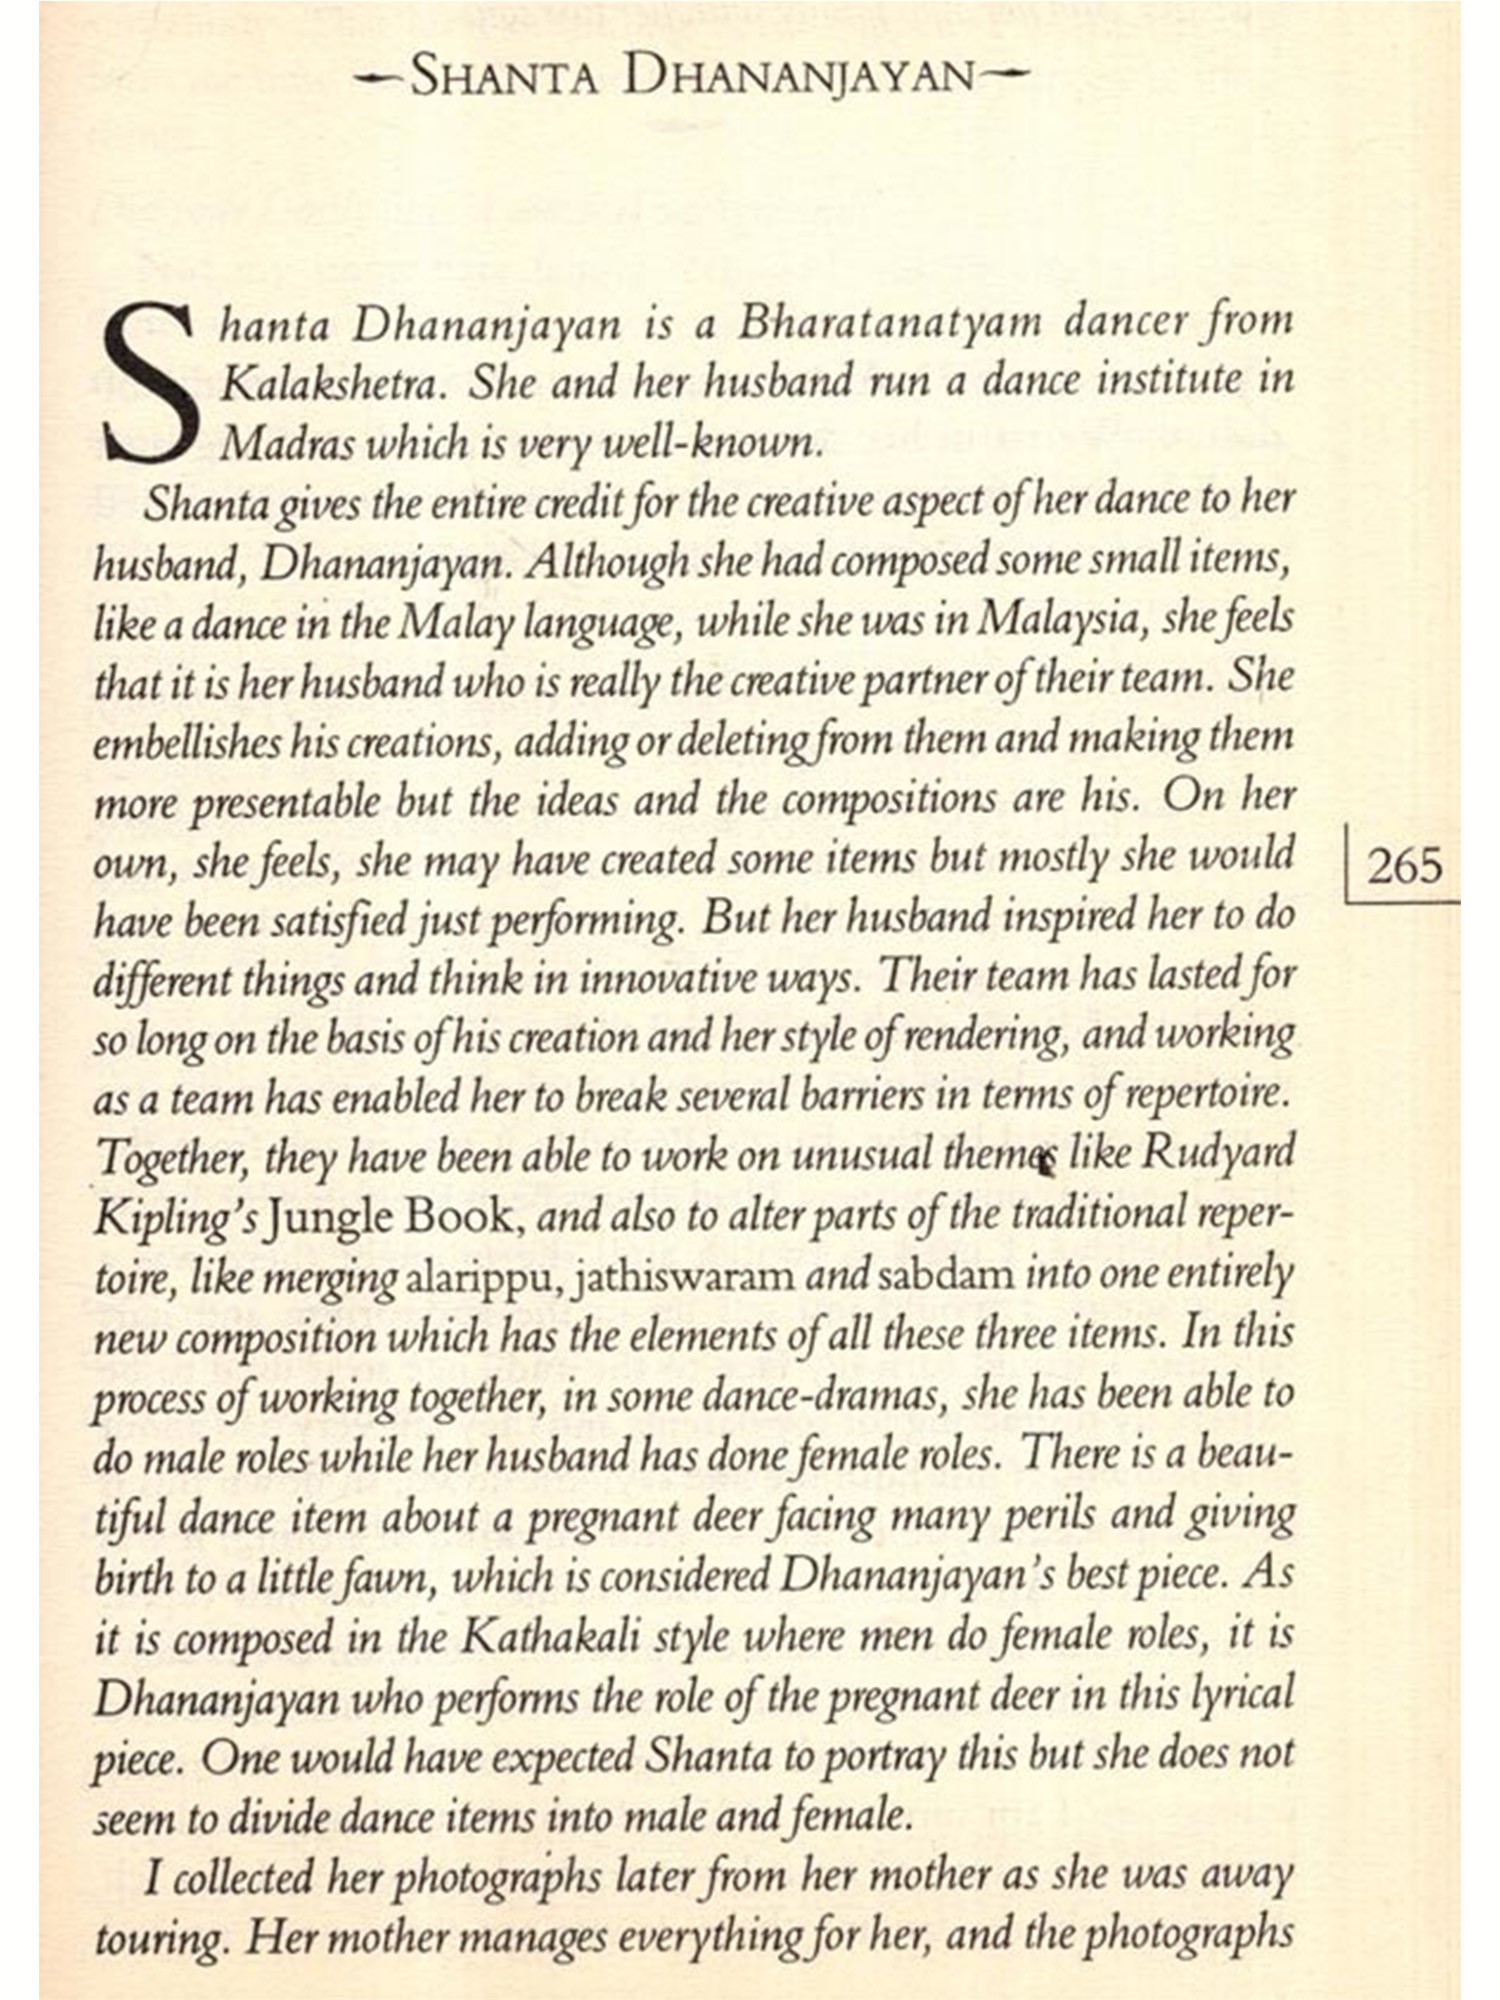 –SHANTA DHANANJAYAN–
Shanta Dhananjayan is a Bharatanatyam dancer from
Kalakshetra. She and her husband run a dance institute in
Madras which is very well-known.
Shanta gives the entire credit for the creative aspect of her dance to her
husband, Dhananjayan. Although she had composed some small items,
like a dance in the Malay language, while she was in Malaysia, she feels
that it is her husband who is really the creative partner of their team. She
embellishes his creations, adding or deleting from them and making them
more presentable but the ideas and the compositions are his. On her
own, she feels, she may have created some items but mostly she would
265
have been satisfied just performing. But her husband inspired her to do
different things and think in innovative ways. Their team has lasted for
so long on the basis of his creation and her style of rendering, and working
as a team has enabled her to break several barriers in terms of repertoire.
Together, they have been able to work on unusual themes like Rudyard
Kipling's Jungle Book, and also to alter parts of the traditional reper-
toire, like merging alarippu, jathiswaram and sabdam into one entirely
new composition which has the elements of all these three items. In this
process of working together, in some dance-dramas, she has been able to
do male roles while her husband has done female roles. There is a beau-
tiful dance item about a pregnant deer facing many perils and giving
birth to a little fawn, which is considered Dhananjayan's best piece. As
it is composed in the Kathakali style where men do female roles, it is
Dhananjayan who performs the role of the pregnant deer in this lyrical
piece. One would have expected Shanta to portray this but she does not
seem to divide dance items into male and female.
I collected her photographs later from her mother as she was away
touring. Her mother manages everything for her, and the photographs